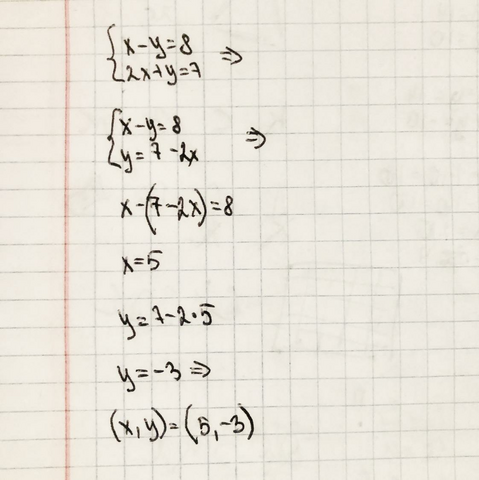 {x-y=8
{2x+y=7 ⇒
{x-y=8
{y=7-2x ⇒
x-(7-2x)=8
x=5
y=7-2·5
y=-3 ⇒
(x,y)=(5,-3)